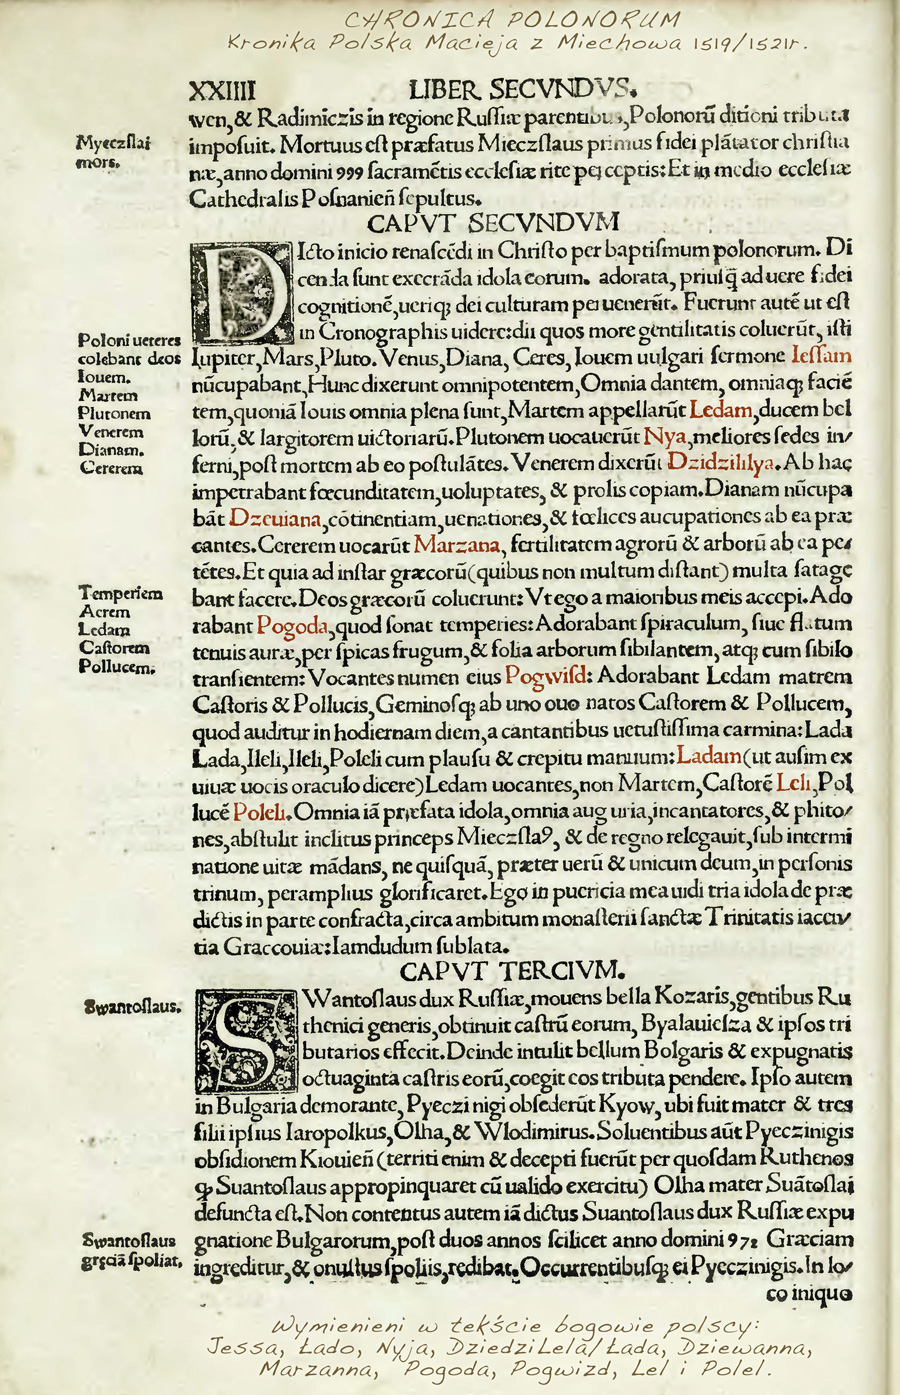 CHRONICA POLONORUM
Kronika Polska Macieja z Miechowa 1519/1521r.
XXIIII LIBER SECVNDVS.
wen, & Radimiczis in regione Ruſſiæ parentibus, Polonorū ditioni tributa
Myeczſlai
mors.
impoſuit. Mortuus eſt præfatus Mieczſlaus primus fidei plātator chriſtia
næ, anno domini 999 ſacramētis eccleſiæ rite perceptis: Et in medio eccleſiæ
Cathedralis Poſnanieñ ſepultus.
CAPVT SECVNDVM
DIcto inicio renaſcēdi in Chriſto per baptiſmum polonorum. Di
cenda ſunt execrāda idola eorum. adorata, priuſq̄ ad uere fidei
cognitionē, ueriq; dei culturam peruenerūt. Fuerunt autē ut eſt
in Cronographis uidere: dii quos more gentilitatis coluerūt, iſti
Poloni ueteres
colebant deos
Iouem.
Martem
Plutonem
Venerem
Dianam.
Cererem
Iupiter, Mars, Pluto. Venus, Diana, Ceres, Iouem uulgari ſermone Ieſſam
nūcupabant, Hunc dixerunt omnipotentem, Omnia dantem, omniaq; faciē
tem, quoniā Iouis omnia plena ſunt, Martem appellarūt Ledam, ducem bel
lorū, & largitorem uictoriarū. Plutonem uocauerūt Nya, meliores ſedes in/
ferni, poſt mortem ab eo poſtulātes. Venerem dixerūt Dzidzililya. Ab hac
impetrabant fœcunditatem, uoluptates, & prolis copiam. Dianam nūcupa
bāt Dzeuiana, cōtinentiam, uenationes, & fœlices aucupationes ab ea præ
cantes. Cererem uocarūt Marzana, fertilitatem agrorū & arborū ab ea pe/
tētes. Et quia ad inſtar græcorū (quibus non multum diſtant) multa ſatage
bant facere. Deos græcorū coluerunt: Vt ego a maioribus meis accepi. Ado
Temperiem
Aerem
Ledam
Caſtorem
Pollucem.
rabant Pogoda, quod ſonat temperies: Adorabant ſpiraculum, ſiue flatum
tenuis auræ, per ſpicas frugum, & folia arborum ſibilantem, atq; cum ſibilo
tranſientem: Vocantes numen eius Pogwiſd: Adorabant Ledam matrem
Caſtoris & Pollucis, Geminoſq; ab uno ouo natos Caſtorem & Pollucem,
quod auditur in hodiernam diem, a cantantibus uetuſtiſſima carmina: Lada
Lada, Ileli, Ileli, Poleli cum plauſu & crepitu manuum: Ladam (ut auſim ex
uiuæ uocis oraculo dicere) Ledam uocantes, non Martem, Caſtorē Leli, Pol
lucē Poleli. Omnia iā præfata idola, omnia auguria, incantatores, & phito/
nes, abſtulit inclitus princeps Mieczſlaꝰ, & de regno relegauit, ſub intermi
natione uitæ mādans, ne quiſquā, præter uerū & unicum deum, in perſonis
trinum, peramplius glorificaret. Ego in puericia mea uidi tria idola de præ
dictis in parte confracta, circa ambitum monaſterii ſanctæ Trinitatis iacen/
tia Graccouiæ: Iamdudum ſublata.
CAPVT TERCIVM.
Swantoſlaus.
SWantoſlaus dux Ruſſiæ, mouens bella Kozaris, gentibus Ru
thenici generis, obtinuit caſtrū eorum, Byalauieſza & ipſos tri
butarios effecit. Deinde intulit bellum Bolgaris & expugnatis
octuaginta caſtris eorū, coegit eos tributa pendere. Ipſo autem
in Bulgaria demorante, Pyeczinigi obſederūt Kyow, ubi fuit mater & tres
filii ipſius Iaropolkus, Olha, & Wlodimirus. Soluentibus aūt Pyeczinigis
obſidionem Kiouieñ (territi enim & decepti fuerūt per quoſdam Ruthenos
ꝙ Suantoſlaus appropinquaret cū ualido exercitu) Olha mater Suātoſlai
defuncta eſt. Non contentus autem iā dictus Suantoſlaus dux Ruſſiæ expu
Swantoſlaus
gręciā ſpoliat.
gnatione Bulgarorum, poſt duos annos ſcilicet anno domini 972 Græciam
ingreditur, & onuſtus ſpoliis, redibat. Occurrentibuſq; ei Pyeczinigis. In lo/
co iniquo
Wymienieni w tekście bogowie polscy:
Jessa, Łado, Nyja, DziedziLela/Łada, Dziewanna,
Marzanna, Pogoda, Pogwizd, Lel i Polel.